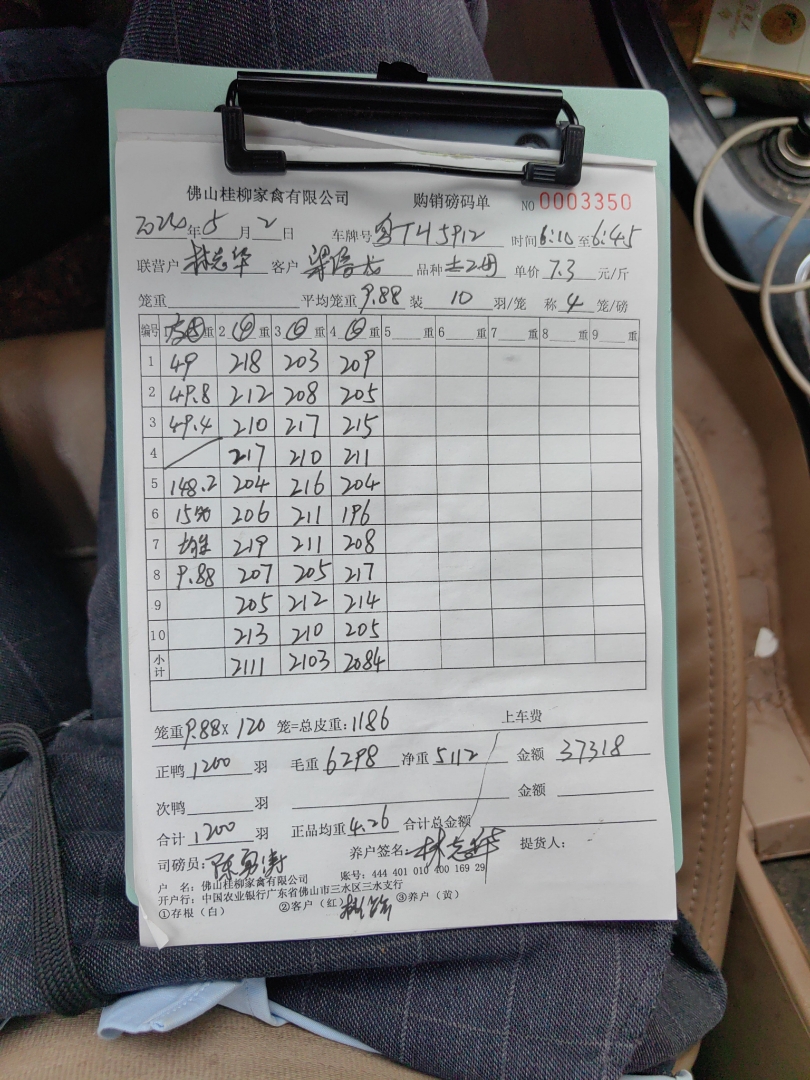 佛山桂柳家禽有限公司 购销磅码单 NO 0003350
2024年5月2日 车牌号 粤TH5912 时间6:10至6:45
联营户 林志华 客户 梁 品种 单价 7.3 元/斤
笼重 平均笼重 9.88 装 10 羽/笼 称 4 笼/磅
编号 重 2 ④ 重 3 ④ 重 4 ④ 重 5 重 6 重 7 重 8 重 9 重
1 49 218 203 209
2 49.8 212 208 205
3 49.4 210 217 215
4 217 210 211
5 148.2 204 216 204
6 15 206 211 196
7 219 211 208
8 9.88 207 205 217
9 205 212 214
10 213 210 205
小计 2111 2103 2084
笼重 9.88 x 120 笼=总皮重:1186 上车费
正鸭 1200 羽 毛重 6298 净重 5112 金额 37318
次鸭 羽 金额
合计 1200 羽 正品均重 4.26 合计总金额
司磅员: 陈勇涛 养户签名: 林志华 提货人:
户 名:佛山桂柳家禽有限公司 账号:444 401 010 400 169 29
开户行:中国农业银行广东省佛山市三水区三水支行
①存根(白) ②客户(红 ③养户(黄)